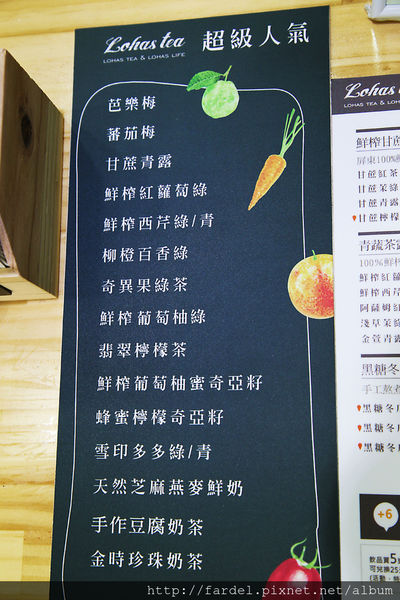 Lohas tea
LOHAS TEA & LOHAS LIFE
超級人氣
芭樂梅
蕃茄梅
甘蔗青露
鮮榨紅蘿蔔綠
鮮榨西芹綠/青
柳橙百香綠
奇異果綠茶
鮮榨葡萄柚綠
翡翠檸檬茶
鮮榨葡萄柚蜜奇亞籽
蜂蜜檸檬奇亞籽
雪印多多綠/青
天然芝麻燕麥鮮奶
手作豆腐奶茶
金時珍珠奶茶
Lohas t
LOHAS TEA & LOHAS
鮮榨甘蔗
屏東100%鮮
甘蔗紅茶
甘蔗茉綠
甘蔗青露
甘蔗檸檬
青蔬茶露
100%鮮榨
鮮榨紅蘿
鮮榨西芹
阿薩姆紅
淺草茉綠
金萱青露
黑糖冬瓜
手工熬煮
黑糖冬瓜
黑糖冬
黑糖冬
+6
飲品買5
可兌換25
http://fardel.pixnet.net/album